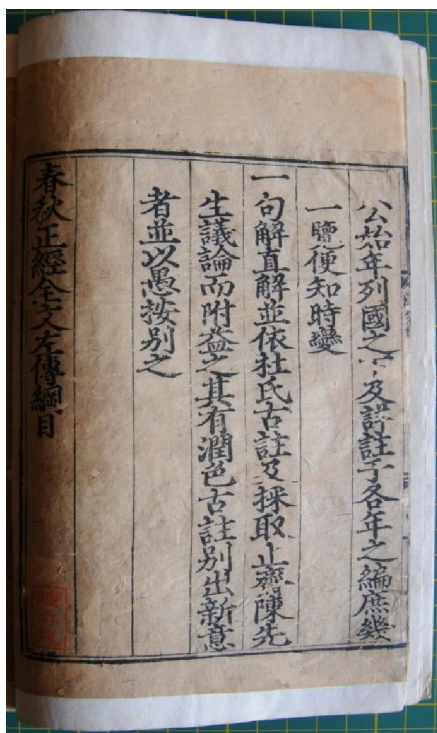 公始年列國之 及詳註于各年之編庶幾
一覽便知時變
一句解直解並依杜氏古註及採取止齋陳先
生議論而附益之其有潤色古註別出新意
者並以愚按別之
春秋正經全文左傳綱目